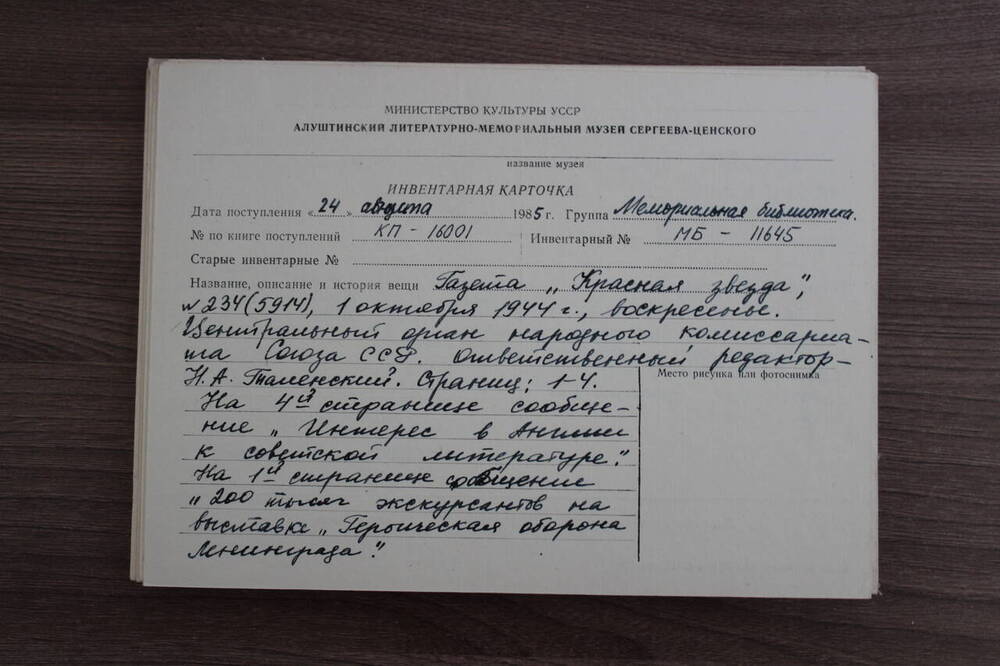 МИНИСТЕРСТВО КУЛЬТУРЫ УССР
АЛУШТИНСКИЙ ЛИТЕРАТУРНО-МЕМОРИАЛЬНЫЙ МУЗЕЙ СЕРГЕЕВА-ЦЕНСКОГО
название музея
ИНВЕНТАРНАЯ КАРТОЧКА
Дата поступления «24» августа 1985 г. Группа Мемориальная библиотека.
№ по книге поступлений КП - 16001 Инвентарный № МБ - 11645
Старые инвентарные №
Название, описание и история вещи Газета „Красная звезда",
№ 234 (5914), 1 октября 1944 г., воскресенье.
Центральный орган народного комиссариа-
та Союза ССР. Ответственный редактор-
Н. А. Таленский. Страниц: 1-4.
Место рисунка или фотоснимка
На 4й странице сообще-
ние „Интерес в Англии
к советской литературе".
На 1й странице сообщение
„200 тысяч экскурсантов на
выставке „Героическая оборона
Ленинграда".